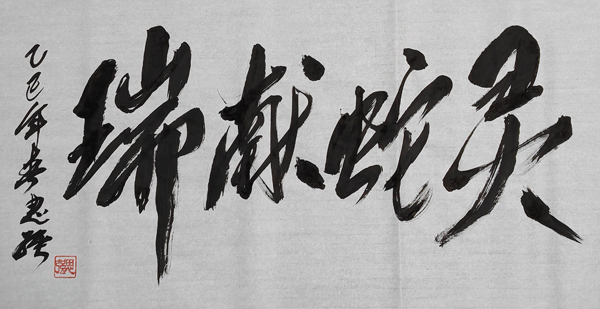 灵蛇献瑞
乙巳年